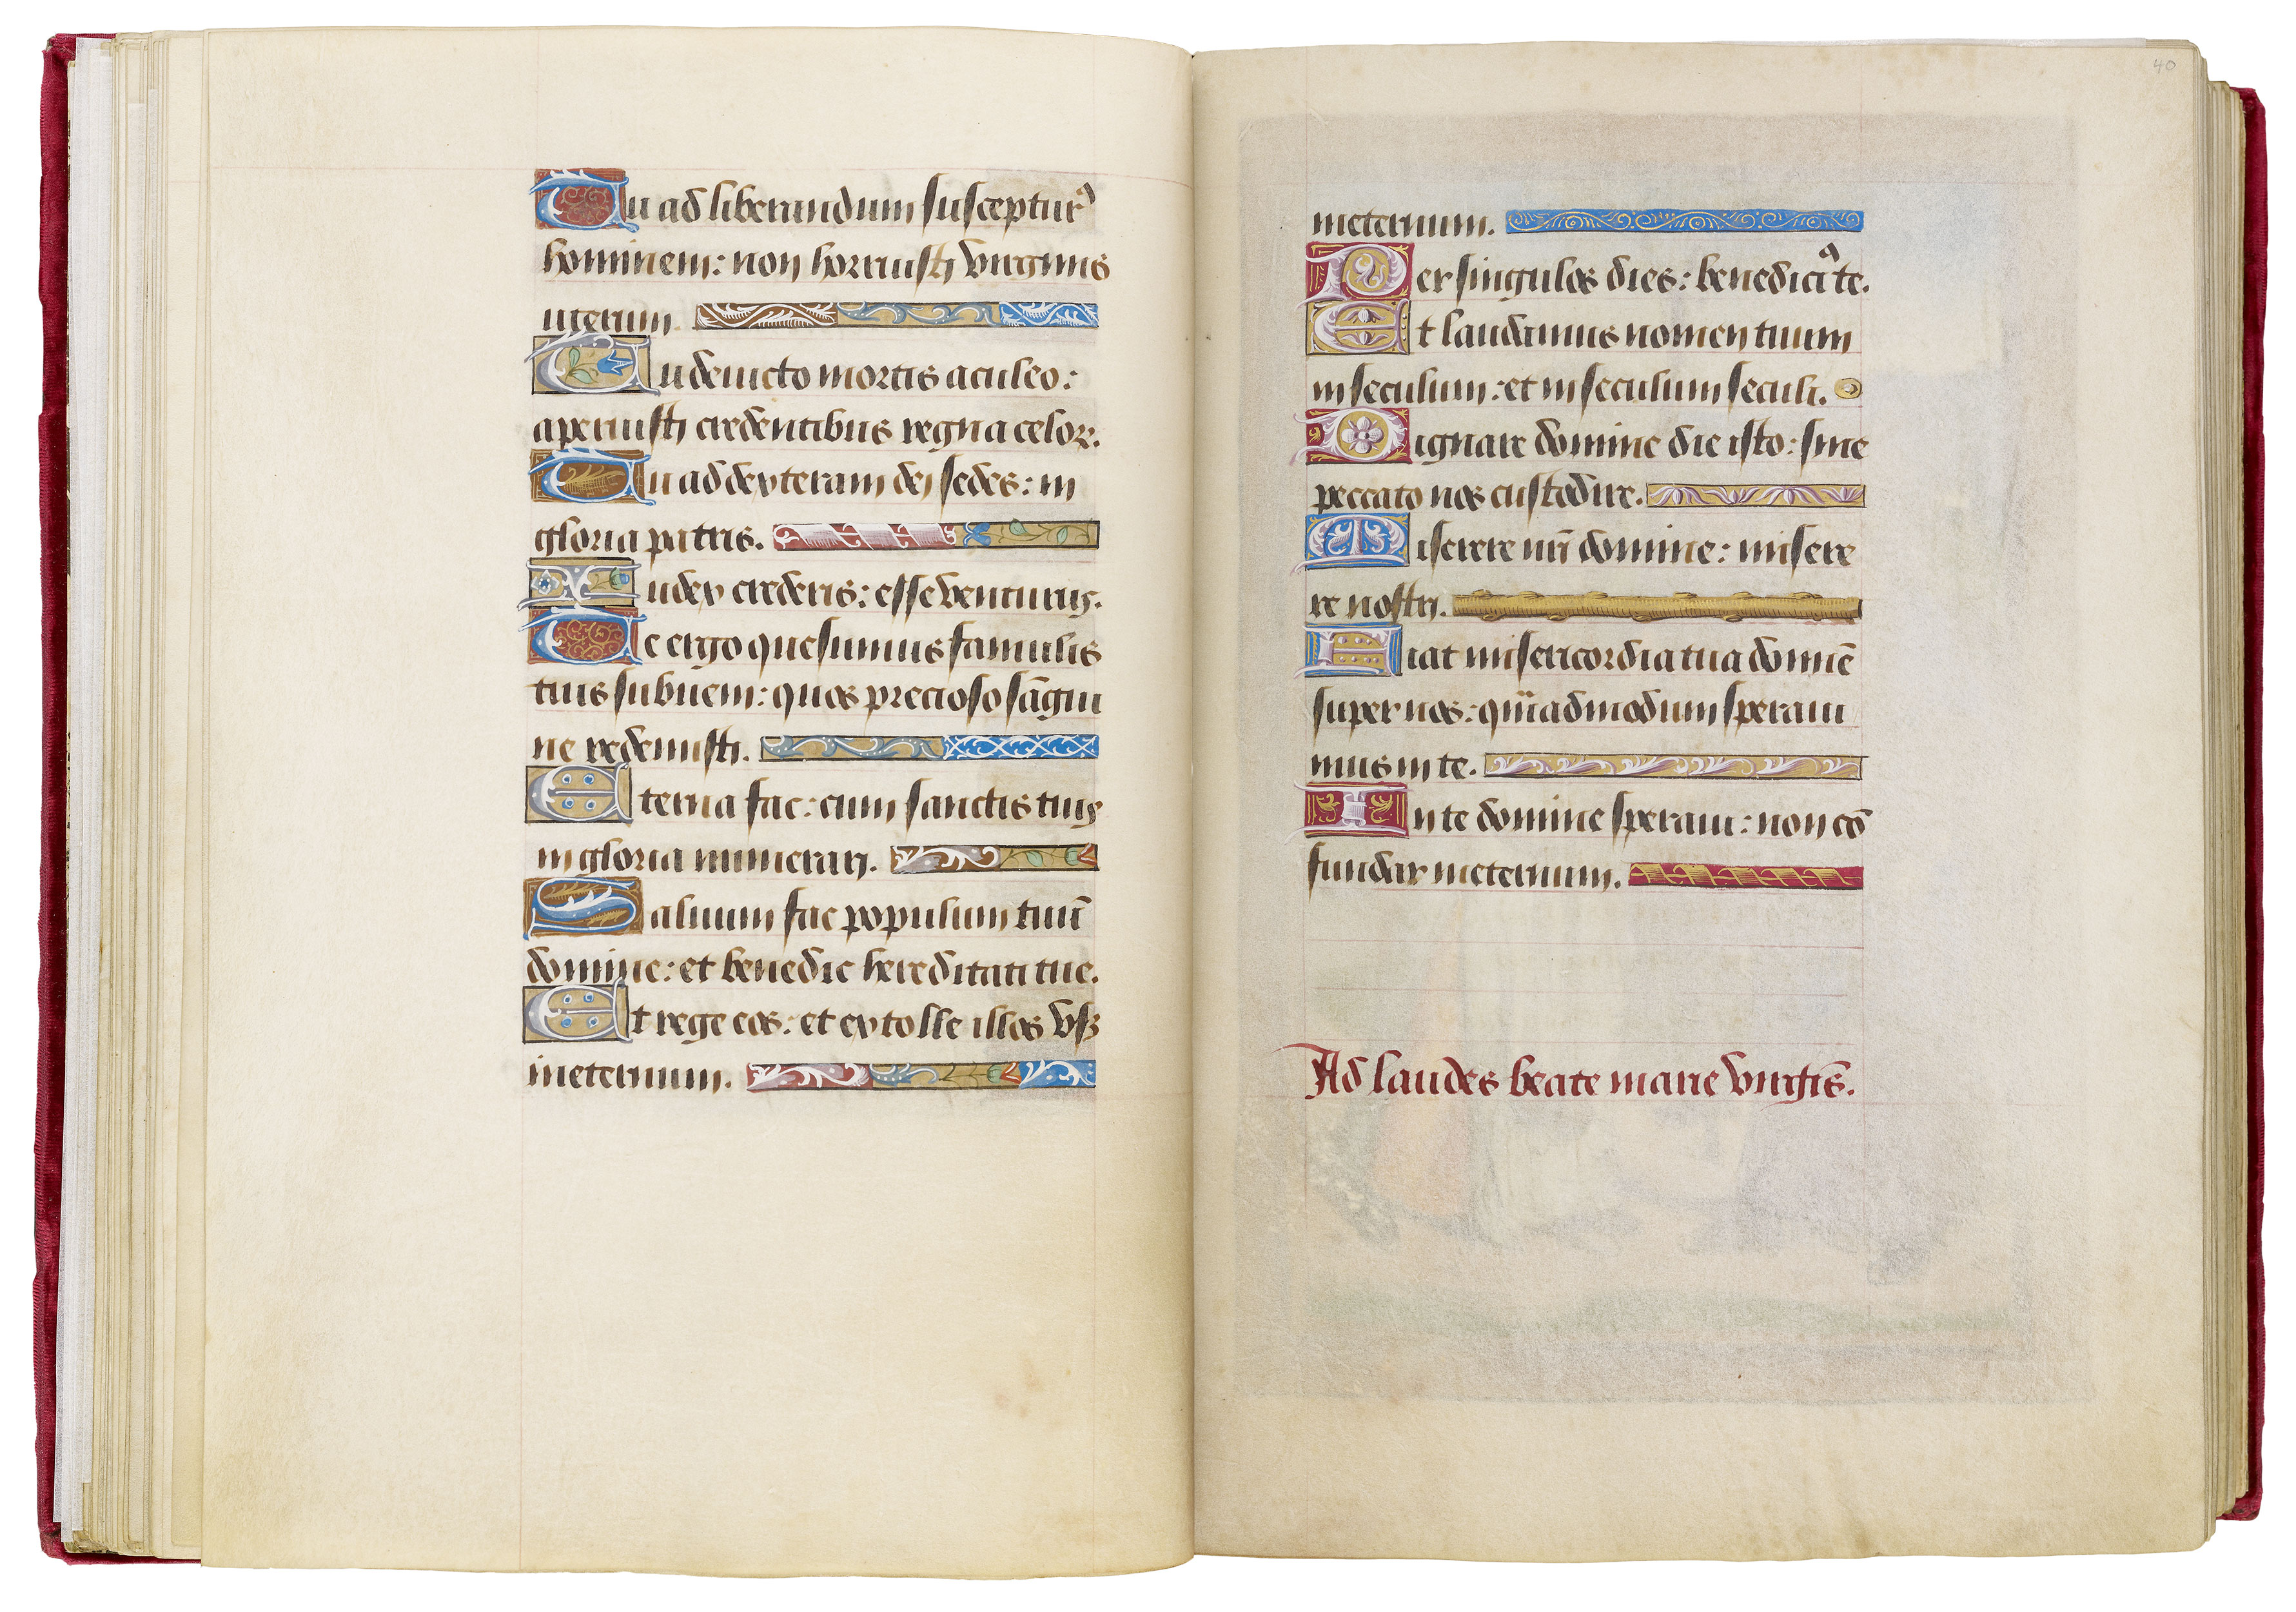 Tu ad liberandum susceptur᾽
hominem: non horruisti virginis
uterum.
Tu devicto mortis aculeo:
aperuisti credentibus regna celoꝝ.
Tu ad dexteram dei sedes: in
gloria patris.
Iudex crederis: esse venturus.
Te ergo quesumus famulis
tuis subveni: quos precioso sāgui
ne redemisti.
Eterna fac: cum sanctis tuis
in gloria numerari.
Salvum fac populum tuū
domine: et benedic hereditati tue.
Et rege eos: et extolle illos vsꝫ
ineternum.
40
ineternum.
Per singulos dies: benedicı᾽ te.
Et laudamus nomen tuum
in seculum: et in seculum seculi.
Dignare domine die isto: sine
peccato nos custodire.
Miserere nr̄i domine: misere
re nostri.
Fiat misericordia tua domīe
super nos: quēadmodum speravi
mus in te.
In te domine speravi: non cō
fundar ineternum.
Ad laudes beate marie virgīs.